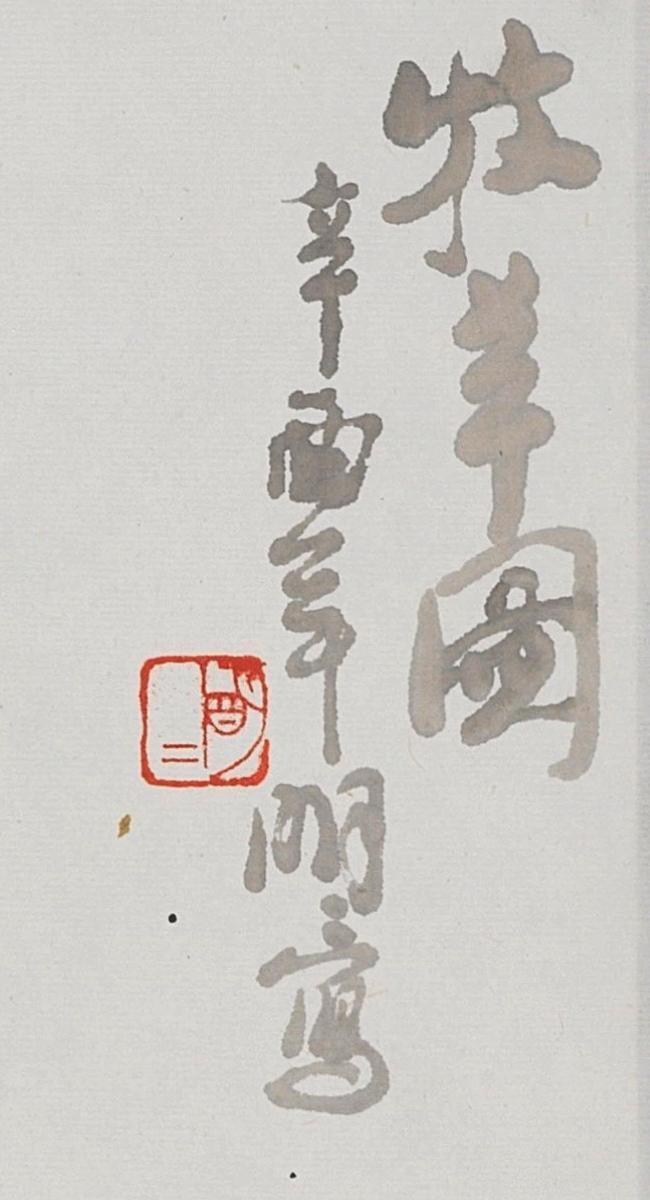 牧羊圖
辛酉年明寫